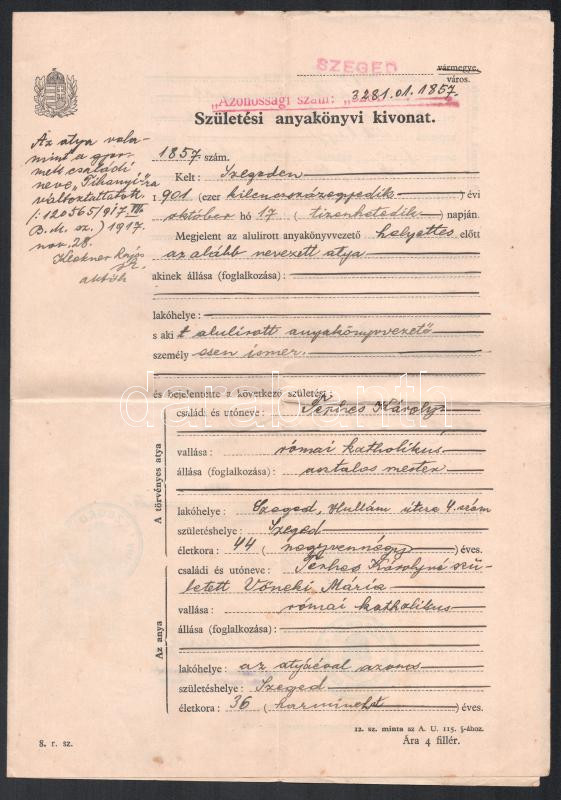 SZEGED vármegye,
város.
„Azonossági szám: 3281.01.1857.
Születési anyakönyvi kivonat.
Az atya vala-
mint a gyer-
mek családi
neve „Tihanyi"-ra
változtattatott
/:120565/917. III b
B. M. sz.) 1917.
nov. 28.
1857. szám.
Kelt: Szegeden
1901 (ezer kilencszázegyedik) évi
október hó 17 (tizenhetedik) napján.
Megjelent az alulirott anyakönyvvezető helyettes előtt
az alább nevezett atya
akinek állása (foglalkozása):
lakóhelye:
s aki t alulirott anyakönyvvezető
személy esen ismer.
és bejelentette a következő születést:
A törvényes atya
családi és utóneve: Terhes Károly
vallása: római katholikus
állása (foglalkozása): asztalos mester
lakóhelye: Szeged, Hullám utcza 4. szám
születéshelye: Szeged
életkora: 44 (negyvennégy) éves.
Az anya
családi és utóneve: Terhes Károlyné szü-
letett Vőneki Mária
vallása: római katholikus
állása (foglalkozása):
lakóhelye: az atyáéval azonos
születéshelye: Szeged
életkora: 36 (harminchat) éves.
12. sz. minta az A. U. 115. §-ához.
8. r. sz. Ára 4 fillér.
darabanth